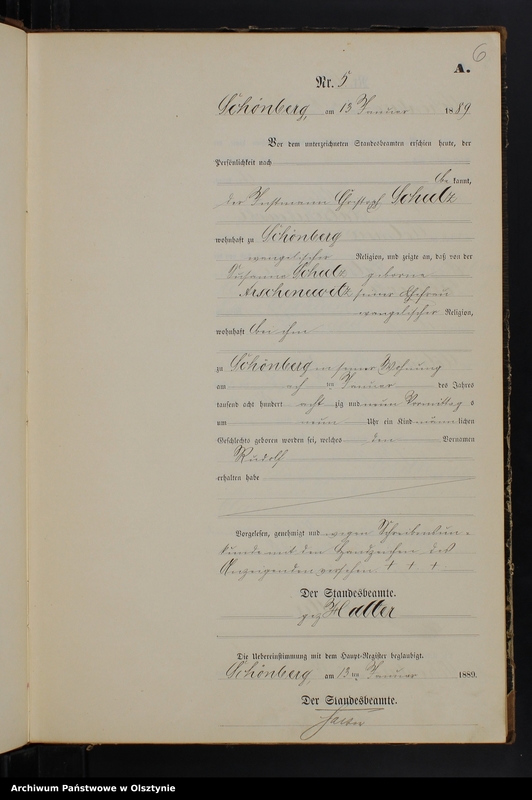 6
A.
Nr. 5
Schönberg, am 13 Januar 1889
Vor dem unterzeichneten Standesbeamten erschien heute, der
Persönlichkeit nach
be kannt,
der Instmann Christoph Schulz
wohnhaft zu Schönberg
evangelischer Religion, und zeigte an, daß von der
Susanna Schulz geborne
seiner Ehefrau
evangelischer Religion,
wohnhaft bei ihm
zu Schönberg in seiner Wohnung
am ten Januar des Jahres
tausend acht hundert acht zig und neun Vormittag s
um neun Uhr ein Kind männ lichen
Geschlechts geboren worden sei, welches den Vornamen
Rudolf
erhalten habe
Vorgelesen, genehmigt und wegen Schreibensun-
kunde mit den Handzeichen des
Anzeigenden versehen + + +
Der Standesbeamte.
gez
Die Uebereinstimmung mit dem Haupt-Register beglaubigt.
Schönberg, am 13 ten Januar 1889.
Der Standesbeamte.
Archiwum Państwowe w Olsztynie